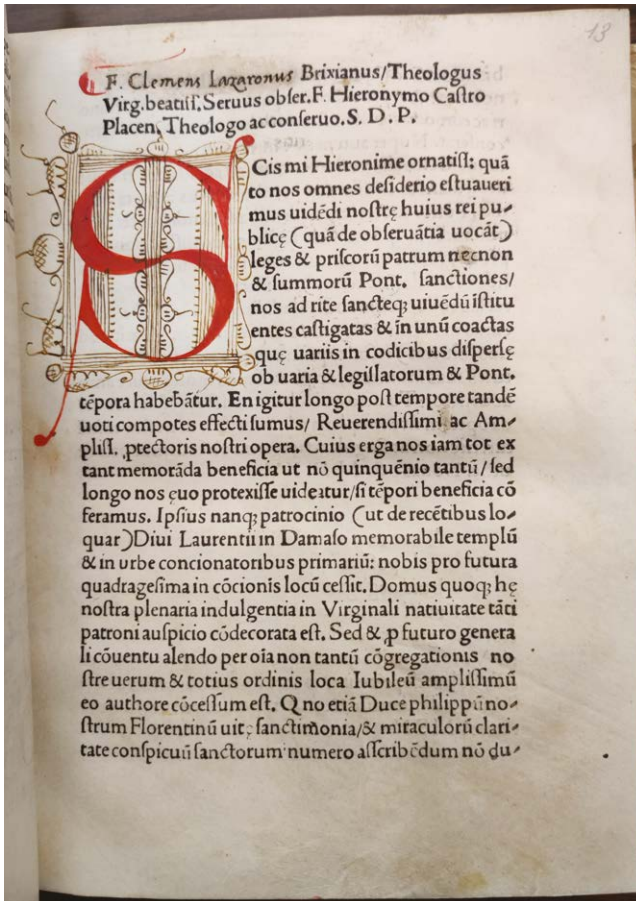 13
F. Clemens Lazaronus Brixianus/Theologus
Virg. beatiſſ. Seruus obſer. F. Hieronymo Caſtro
Placen. Theologo ac conſeruo. S. D. P.
SCis mi Hieronime ornatiſſ: quā
to nos omnes deſiderio eſtuaueri
mus uidēdi noſtrę huius rei pu⸗
blicę (quā de obſeruātia uocāt)
leges & priſcorū patrum necnon
& ſummorū Pont. ſanctiones/
nos ad rite ſancteq; uiuēdū īſtitu
entes caſtigatas & in unū coactas
quę uariis in codicibus diſperſę
ob uaria & legiſlatorum & Pont.
tēpora habebātur. En igitur longo poſt tempore tandē
uoti compotes effecti ſumus/ Reuerendiſſimi ac Am⸗
pliſſ. ꝓtectoris noſtri opera. Cuius erga nos iam tot ex
tant memorāda beneficia ut nō quinquēnio tantū/ ſed
longo nos ęuo protexiſſe uideatur/ſi tēpori beneficia cō
feramus. Ipſius nanq; patrocinio (ut de recētibus lo⸗
quar) Diui Laurentii in Damaſo memorabile templū
& in urbe concionatoribus primariū: nobis pro futura
quadrageſima in cōcionis locū ceſſit. Domus quoq; hę
noſtra plenaria indulgentia in Virginali natiuitate tāti
patroni auſpicio cōdecorata eſt. Sed & ꝓ futuro genera
li cōuentu alendo per oīa non tantū cōgregationis no
ſtre uerum & totius ordinis loca Iubileū ampliſſimū
eo authore cōceſſum eſt. Q no etiā Duce philippū no⸗
ſtrum Florentinū uitę ſanctimonia/& miraculorū clari⸗
tate conſpicuū ſanctorum numero aſſcribēdum nō du⸗